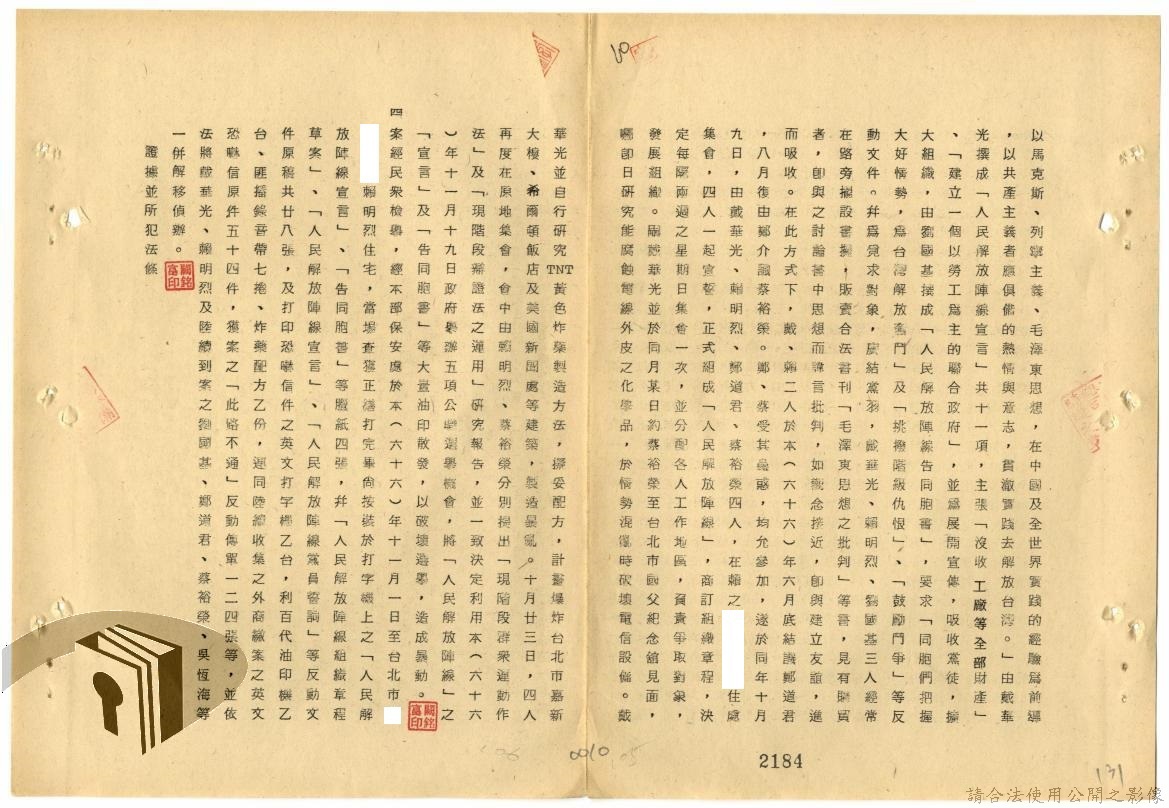 以馬克斯、列寧主義、毛澤東思想，在中國及全世界實踐的經驗為前導
，以共產主義者應俱備的熱情與意志，貫澈實踐去解放台灣。」由戴華
光撰成「人民解放陣線宣言」共十一項，主張「沒收工廠等全部財產」
、「建立一個以勞工為主的聯合政府」，並為展開宣傳，吸收黨徒，擴
大組織，由劉國基撰成「人民解放陣線告同胞書」，要求「同胞們把握
大好情勢，為台灣解放奮鬥」及「挑撥階級仇恨」、「鼓勵鬥爭」等反
動文件。幷為覓求對象，廣結黨羽，戴華光、賴明烈、劉國基三人經常
在路旁擺設書攤，販賣合法書刊「毛澤東思想之批判」等書，見有購買
者，卽與之討論書中思想而諱言批判，如觀念接近，卽與建立友誼，進
而吸收。在此方式下，戴、賴二人於本（六十六）年六月底結識鄭道君
，八月後由鄭介識蔡裕榮。鄭、蔡受其蠱惑，均允參加，遂於同年十月
九日，由戴華光、賴明烈、鄭道君、蔡裕榮四人，在賴之住處
集會，四人一起宣誓，正式組成「人民解放陣線」，商訂組織章程，決
定每隔兩週之星期日集會一次，並分配各人工作地區，負責爭取對象，
發展組織。嗣戴華光並於同月某日約蔡裕榮至台北市國父紀念舘見面，
囑卽日研究能腐蝕電線外皮之化學品，於情勢混亂時破壞電信設備。戴
華光並自行研究TNT黃色炸藥製造方法，擬妥配方，計劃爆炸台北市嘉新
大樓、希爾頓飯店及美國新聞處等建築，製造暴亂。十月廿三日，四人
再度在原地集會，會中由賴明烈、蔡裕榮分別提出「現階段群衆運動作
法」及「現階段辯證法之運用」研究報告，並一致決定利用本（六十六
）年十一月十九日政府舉辦五項公職選舉機會，將「人民解放陣線」之
「宣言」及「告同胞書」等大量油印散發，以破壞選舉，造成暴動。
四案經民衆檢舉，經本部保安處於本（六十六）年十一月一日至台北市
賴明烈住宅，當場查獲正繕打完畢尚按裝於打字機上之「人民解
放陣線宣言」、「告同胞書」等臘紙四張，幷「人民解放陣線組織章程
草案」、「人民解放陣線宣言」、「人民解放陣線黨員誓詞」等反動文
件原稿共廿八張，及打印恐嚇信件之英文打字機乙台，利百代油印機乙
台、匪播錄音帶七捲、炸藥配方乙份，連同陸續收集之外商繳案之英文
恐嚇信原件五十四件，獲案之「此路不通」反動傳單一二四張等，並依
法將戴華光、賴明烈及陸續到案之劉國基、鄭道君、蔡裕榮、吳恆海等
一併解移偵辦。
證據並所犯法條
2184
0010
131
請合法使用公開之影像